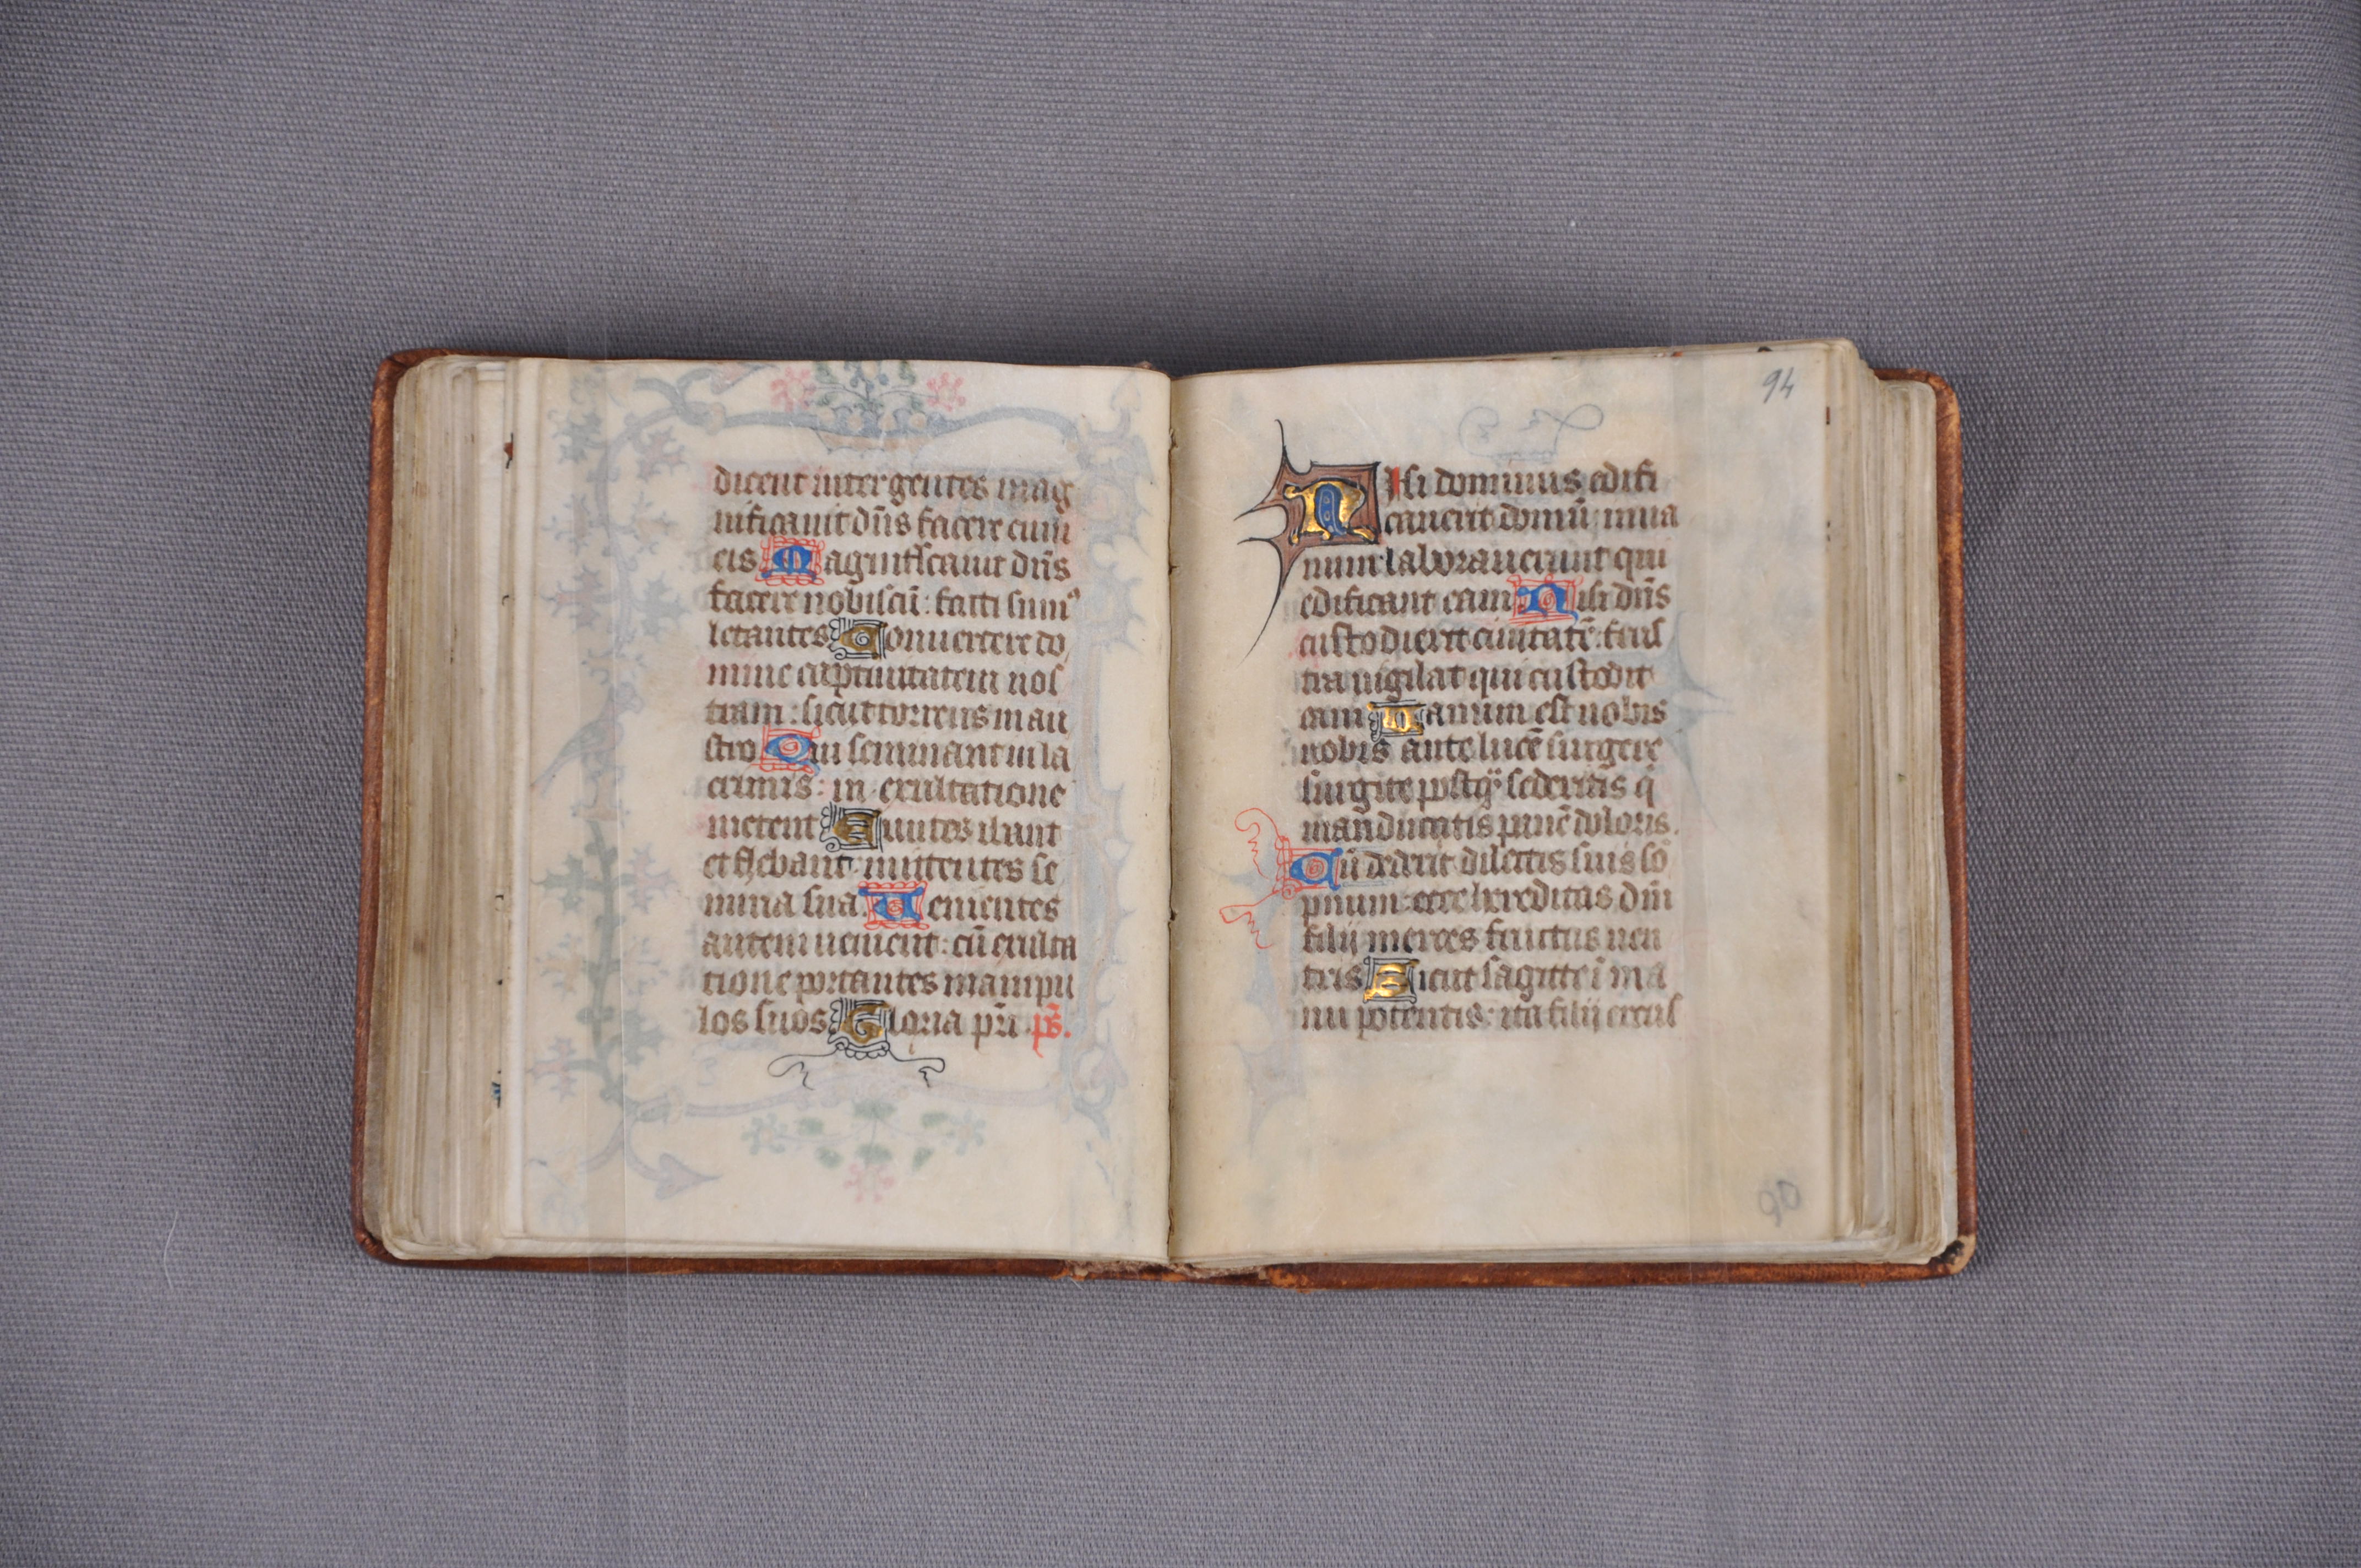 dicent inter gentes mag
nificauit dñs facere cum
eis Magnificauit dñs
facere nobiscū : facti sumꝰ
letantes Conuertere do
mine captiuitatem nos
tram : sicut torrens in au
stro Qui seminant in la
crimis : in exultatione
metent Euntes ibant
et flebant mittentes se
mina sua. Uenientes
autem uenient : cū exulta
tione portantes manipu
los suos Gloria pr̄i ps̄.
94
Nisi dominus edifi
cauerit domū in ua
num laborauerunt qui
edificant eam Nisi dñs
custodierit ciuitatē : frus
tra uigilat qui custodit
eam Uanum est uobis
uobis ante lucē surgere
surgite postq̄ sederitis q̄
manducatis panē doloris.
Cū dederit dilectis suis sō
pnum : ecce hereditas dn̄i
filij merces fructus uen
tris Sicut sagitte ī ma
nu potentis : ita filij excus
90